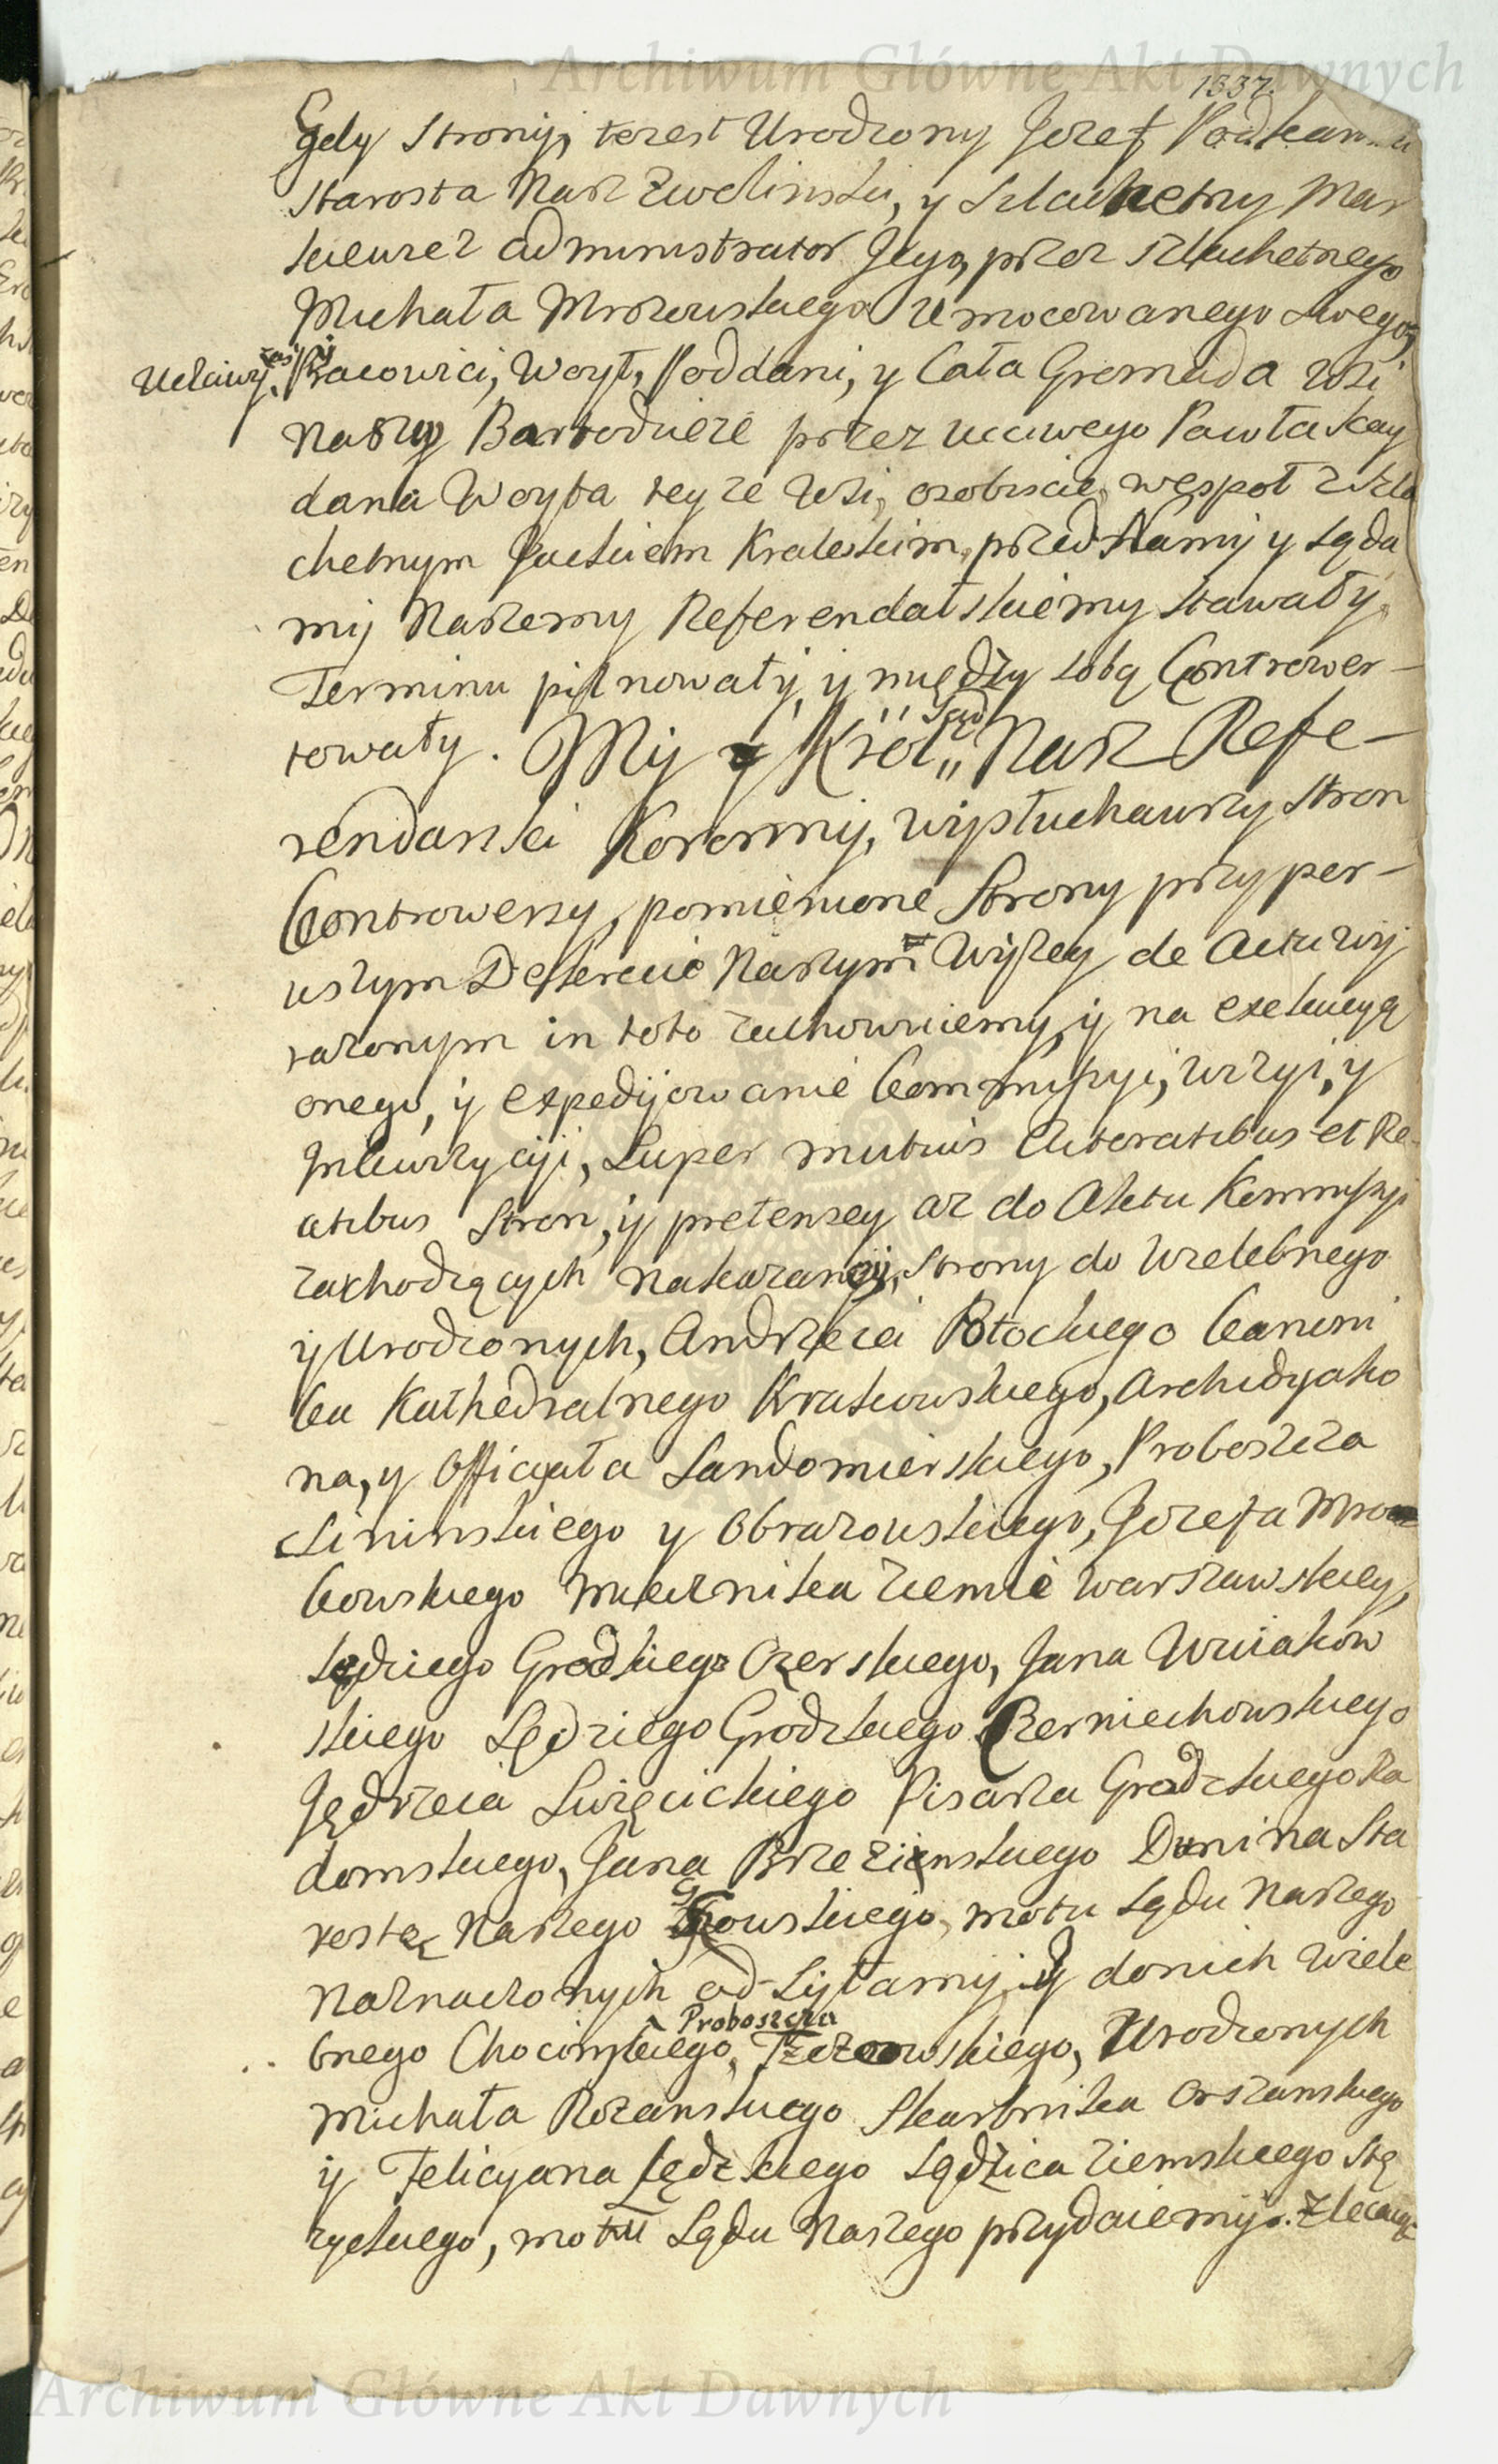 Archiwum Główne Akt Dawnych
1337.
Gdy Strony, to iest Urodzony Jozef
Starosta Nasz Zwolinski, y Szlachetny Mar
kiewicz administrator Jego, przez szlachetnego
Michała Mrozowskiego Umocowanego Swego,
Uczciwy zaś Pracowici, Woyt, Poddani, y Cała Gromada Wsi
naszy Bartodzieie przez uczciwego Pawła Kay
dana Woyta teyze Wsi, osobiscie, wespoł z Szla
chetnym Jackiem Kraleskim, przed Nami y Sąda
mi Naszemy Referendarskiemy stawały,
Terminu pilnowały, y między sobą Contrower-
towały. My Król y Sąd Nasz Refe-
rendarski Koronny, wysłuchawszy Stron
Controwersy, pomienione Strony przy per-
wszym Dekrecie Naszym Wyżey de Actu wy
razonym in toto zachowuiemy, y na exekucyą
onego, y expedijowanie Commissyi, Wizyi, y
Inkwizycyi, Super mutuis Citoratibus et Re-
atibus Stron, y pretensey az do Aktu Kommissyi
zachodzących nakazaney, Strony do Wielebnego
y Urodzonych, Andrzeia Potockiego Canoni
ca Kathedralnego Krakowskiego, Archidyako
na, y Officyała Sandomierskiego, Proboszcza
Sininskiego y Obrazowskiego, Jozefa Mro
cowskiego Miecznika Ziemie Warszawskiey,
Sędziego Grodskiego Czerskiego, Jana Wziakow
skiego Sędziego Grodzkiego Czerniechowskiego
Jędrzeia Swięcickiego Pisarza Grodzkiego Ra
domskiego, Jana Brzezienskiego Dunina Sta
rostę Naszego motu Sądu Naszego
Naznaczonych od Syłamy, y do nich Wiele
bnego Chocimskiego, Proboszcza Urodzonych
Michała Rozanskiego Skarbnika Orszanskiego
y Felicyana Sędzkiego Sędzica Ziemskiego Stę
zyckiego, motu Sądu Naszego przydaiemy. Zlecaiąc
Archiwum Główne Akt Dawnych